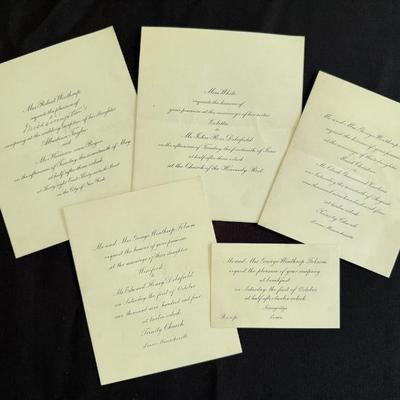 Mrs Robert Winthrop
requests the pleasure of
company at the wedding reception of her daughter
Albertina Taylor
and
Mr Harrison van Buyn
on the afternoon of Tuesday the of May
at half after three o'clock
at Thirty eight East Thirty-seventh Street
in the City of New York
Miss White
requests the honour of
your presence at the marriage of her sister
Violetta
to
Mr John Ross Delafield
on the afternoon of Tuesday the fourteenth of June
at half after three o'clock
at the Church of the Heavenly Rest
Mr and Mrs George Winthrop Folsom
request the honour of
at the marriage of their daughter
to
Mr
on the afternoon of
at half after o'clock
Trinity Church
Lenox Massachusetts
Mr and Mrs George Winthrop Folsom
request the honour of your presence
at the marriage of their daughter
Winifred
to
Mr Edward Henry Delafield
on Saturday the first of October
one thousand nine hundred and four
at twelve o'clock
Trinity Church
Lenox Massachusetts
Mr and Mrs George Winthrop Folsom
request the pleasure of your company
at breakfast
on Saturday the first of October
at half after twelve o'clock
Sunnyridge
R.s.v.p. Lenox